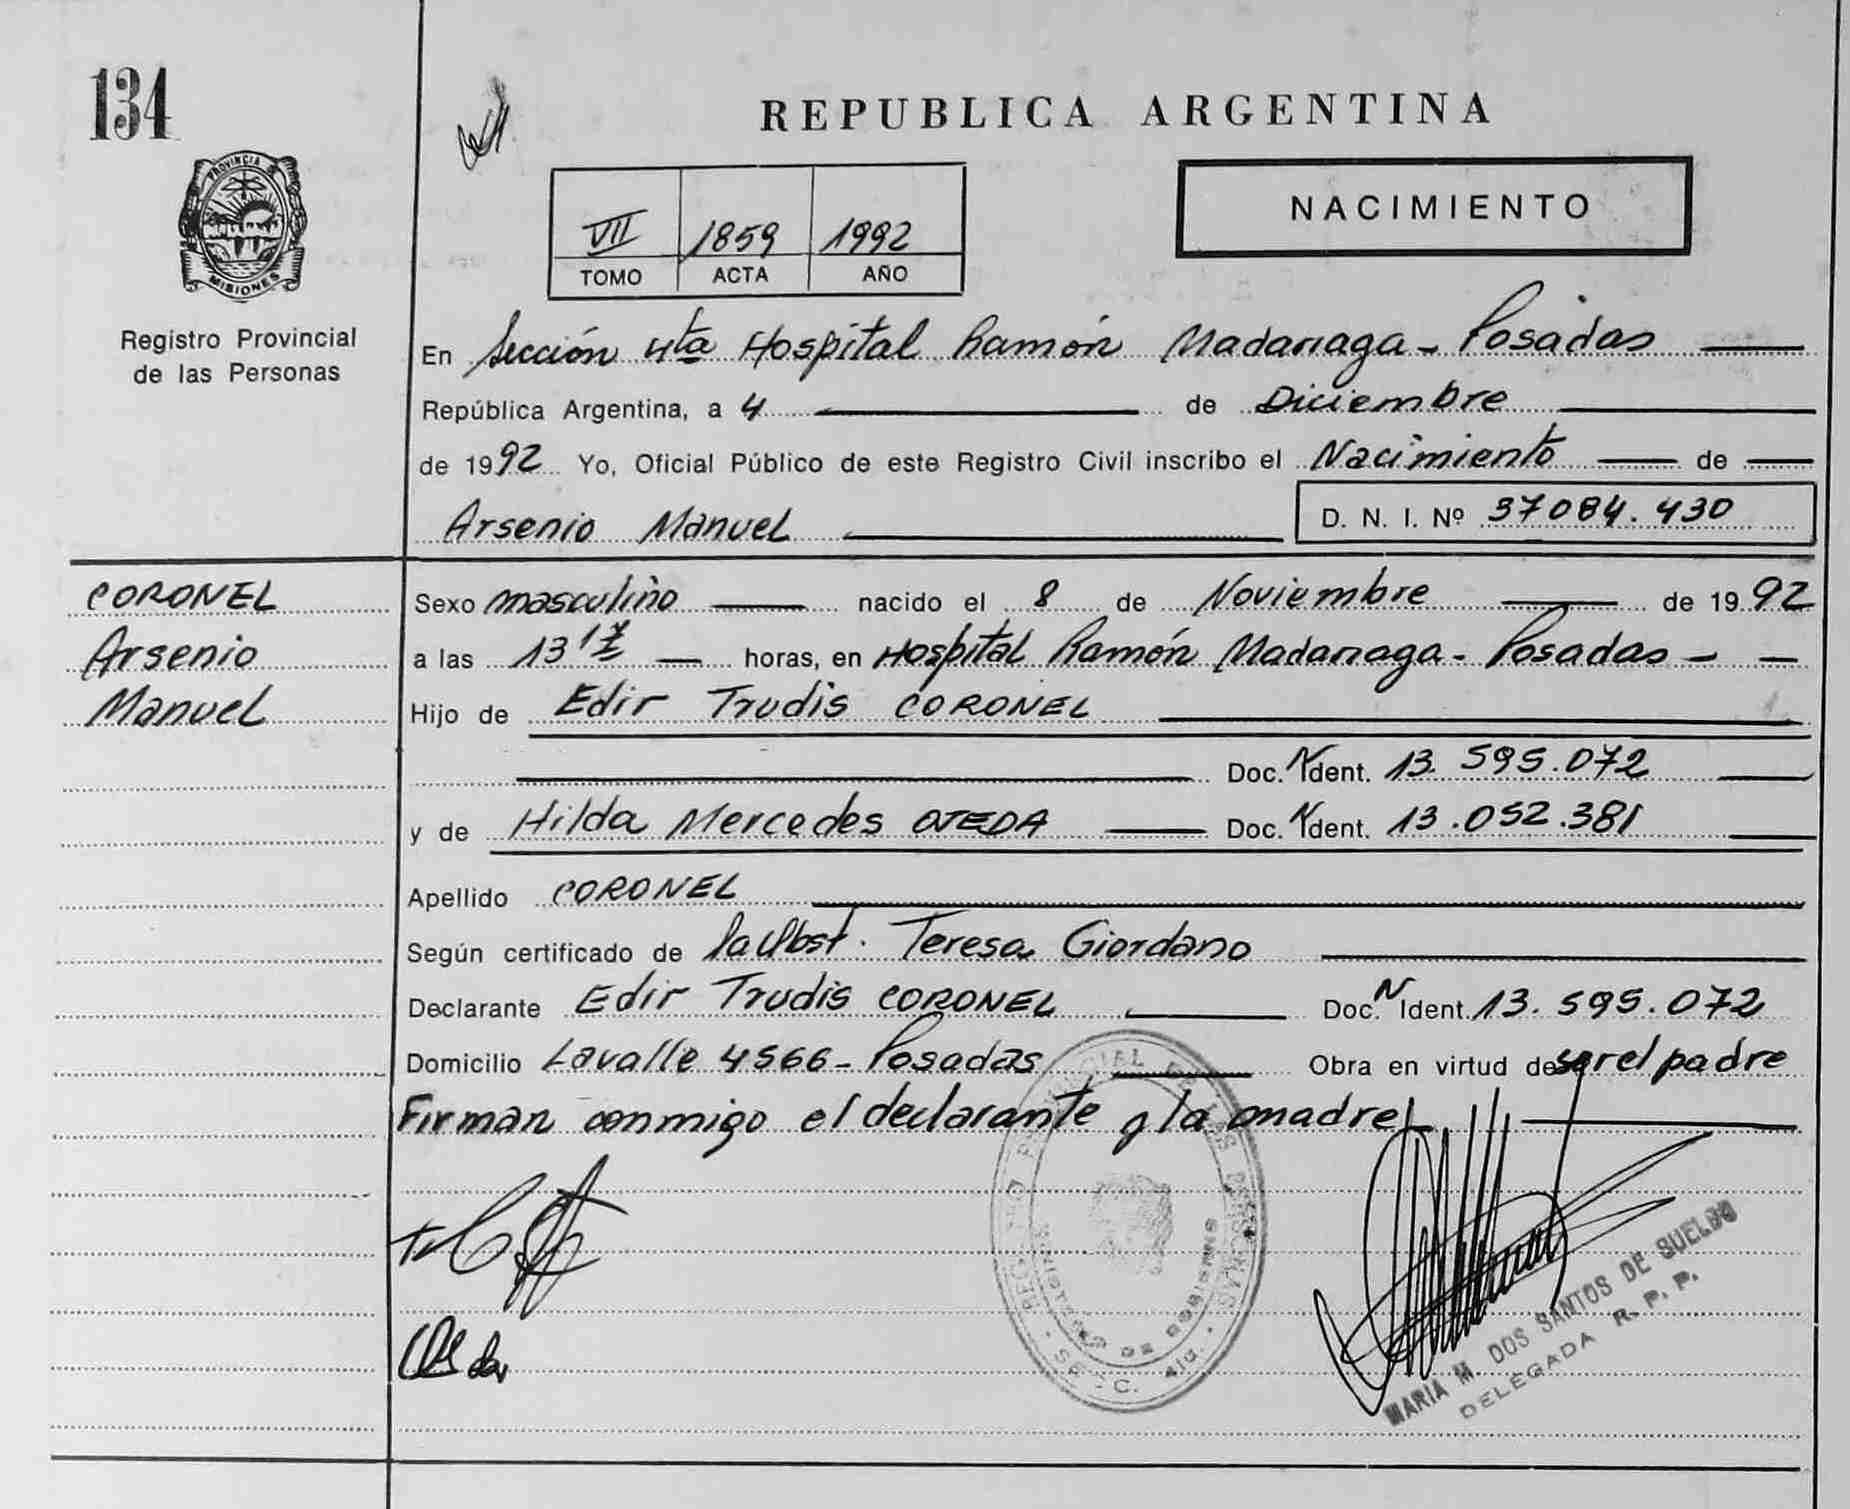 134
REPUBLICA ARGENTINA
PROVINCIA
MISIONES
VII 1859 1992
TOMO ACTA AÑO
NACIMIENTO
Registro Provincial
de las Personas
En Sección 4ta Hospital Ramón Madariaga - Posadas
República Argentina, a 4 de Diciembre
de 1992 Yo, Oficial Público de este Registro Civil inscribo el Nacimiento de
Arsenio Manuel D. N. I. Nº 37084.430
CORONEL
Arsenio
Manuel
Sexo masculino nacido el 8 de Noviembre de 1992
a las 13 horas, en Hospital Ramón Madariaga - Posadas -
Hijo de Edir Trudis CORONEL
Doc. N Ident. 13.595.072
y de Hilda Mercedes OJEDA Doc. N Ident. 13.052.381
Apellido CORONEL
Según certificado de la Obst. Teresa Giordano
Declarante Edir Trudis CORONEL Doc. N Ident. 13.595.072
Domicilio Lavalle 4566 - Posadas Obra en virtud de ser el padre
Firman conmigo el declarante y la madre
MARIA M. DOS SANTOS DE SUELDO
DELEGADA R. P. P.